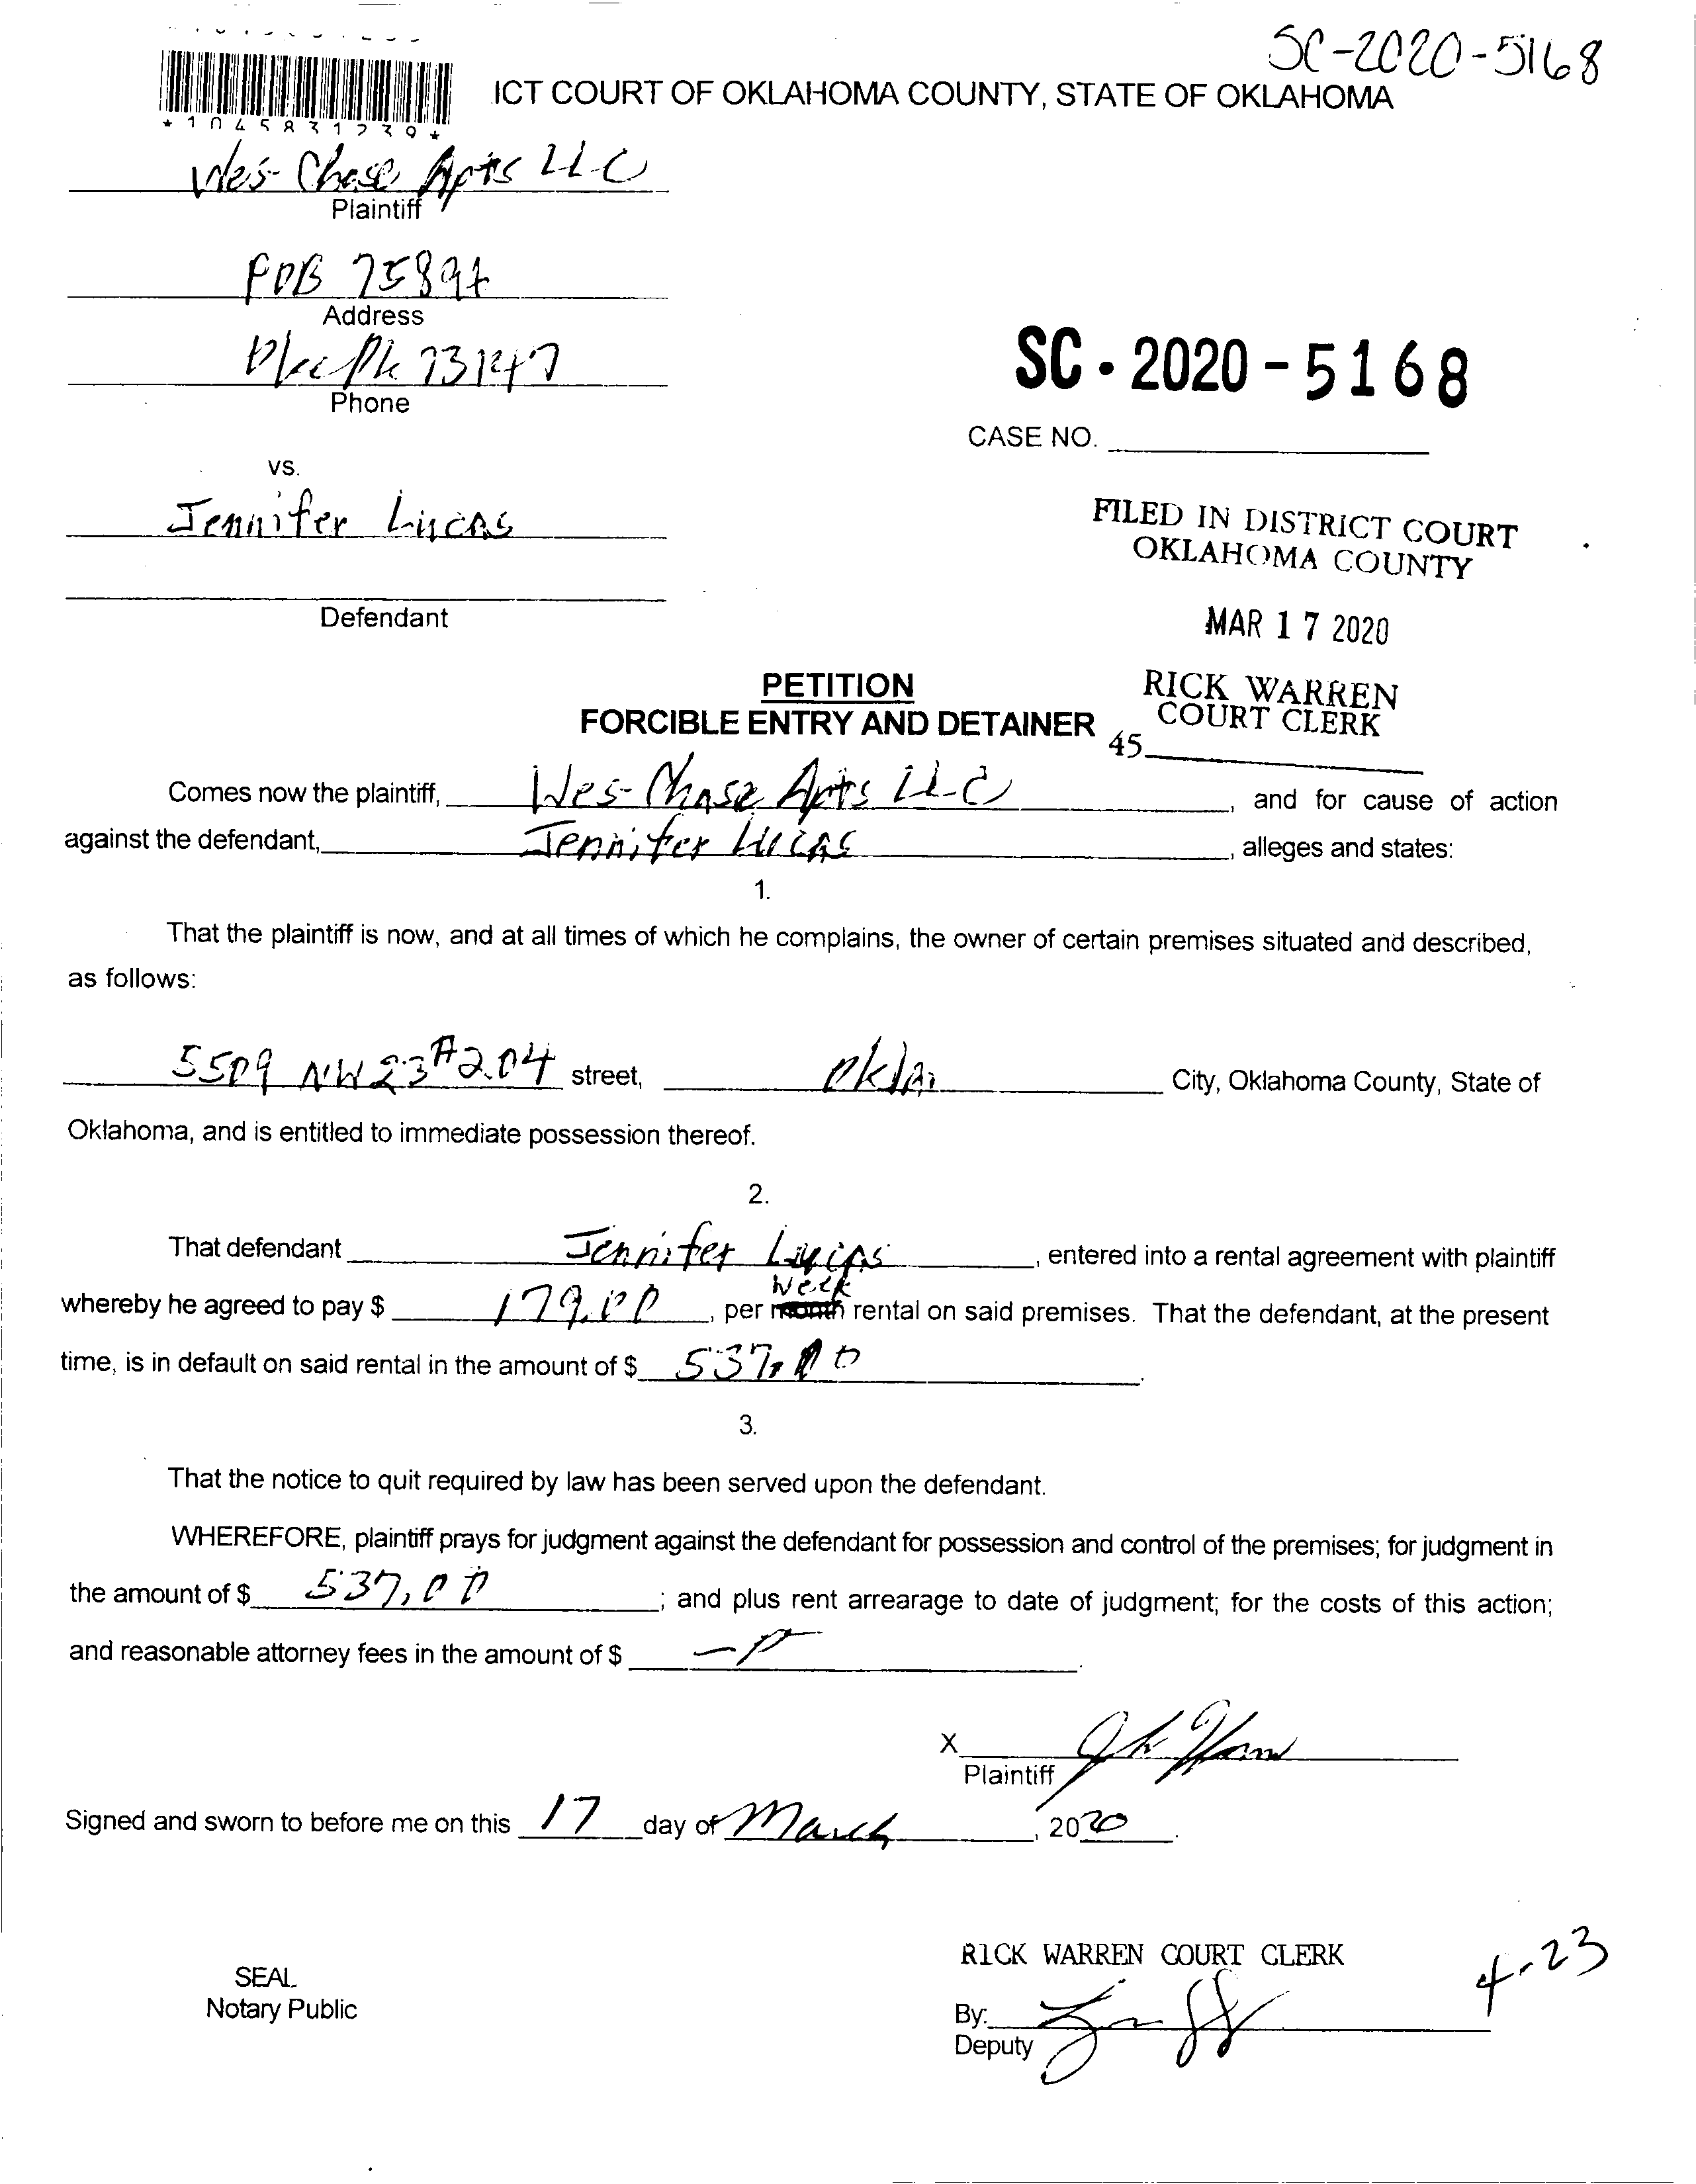 SC-2020-5168
ICT COURT OF OKLAHOMA COUNTY, STATE OF OKLAHOMA
*1045831239*
Wes-Chase Apts LLC
Plaintiff
POB 75894
Address
73147
Phone
SC - 2020 - 5168
CASE NO.
vs.
Jennifer Lucas
Defendant
FILED IN DISTRICT COURT
OKLAHOMA COUNTY
MAR 17 2020
RICK WARREN
COURT CLERK
45
PETITION
FORCIBLE ENTRY AND DETAINER
Comes now the plaintiff, Wes-Chase Apts LLC, and for cause of action
against the defendant, Jennifer Lucas, alleges and states:
1.
That the plaintiff is now, and at all times of which he complains, the owner of certain premises situated and described,
as follows:
5509 NW 23 #204 street, Okla City, Oklahoma County, State of
Oklahoma, and is entitled to immediate possession thereof.
2.
That defendant Jennifer Lucas, entered into a rental agreement with plaintiff
whereby he agreed to pay $ 179.00, per month week rental on said premises. That the defendant, at the present
time, is in default on said rental in the amount of $ 537.00.
3.
That the notice to quit required by law has been served upon the defendant.
WHEREFORE, plaintiff prays for judgment against the defendant for possession and control of the premises; for judgment in
the amount of $ 537.00; and plus rent arrearage to date of judgment; for the costs of this action;
and reasonable attorney fees in the amount of $ .
X
Plaintiff
Signed and sworn to before me on this 17 day of March, 2020.
RICK WARREN COURT CLERK
4-23
SEAL
Notary Public
By:
Deputy